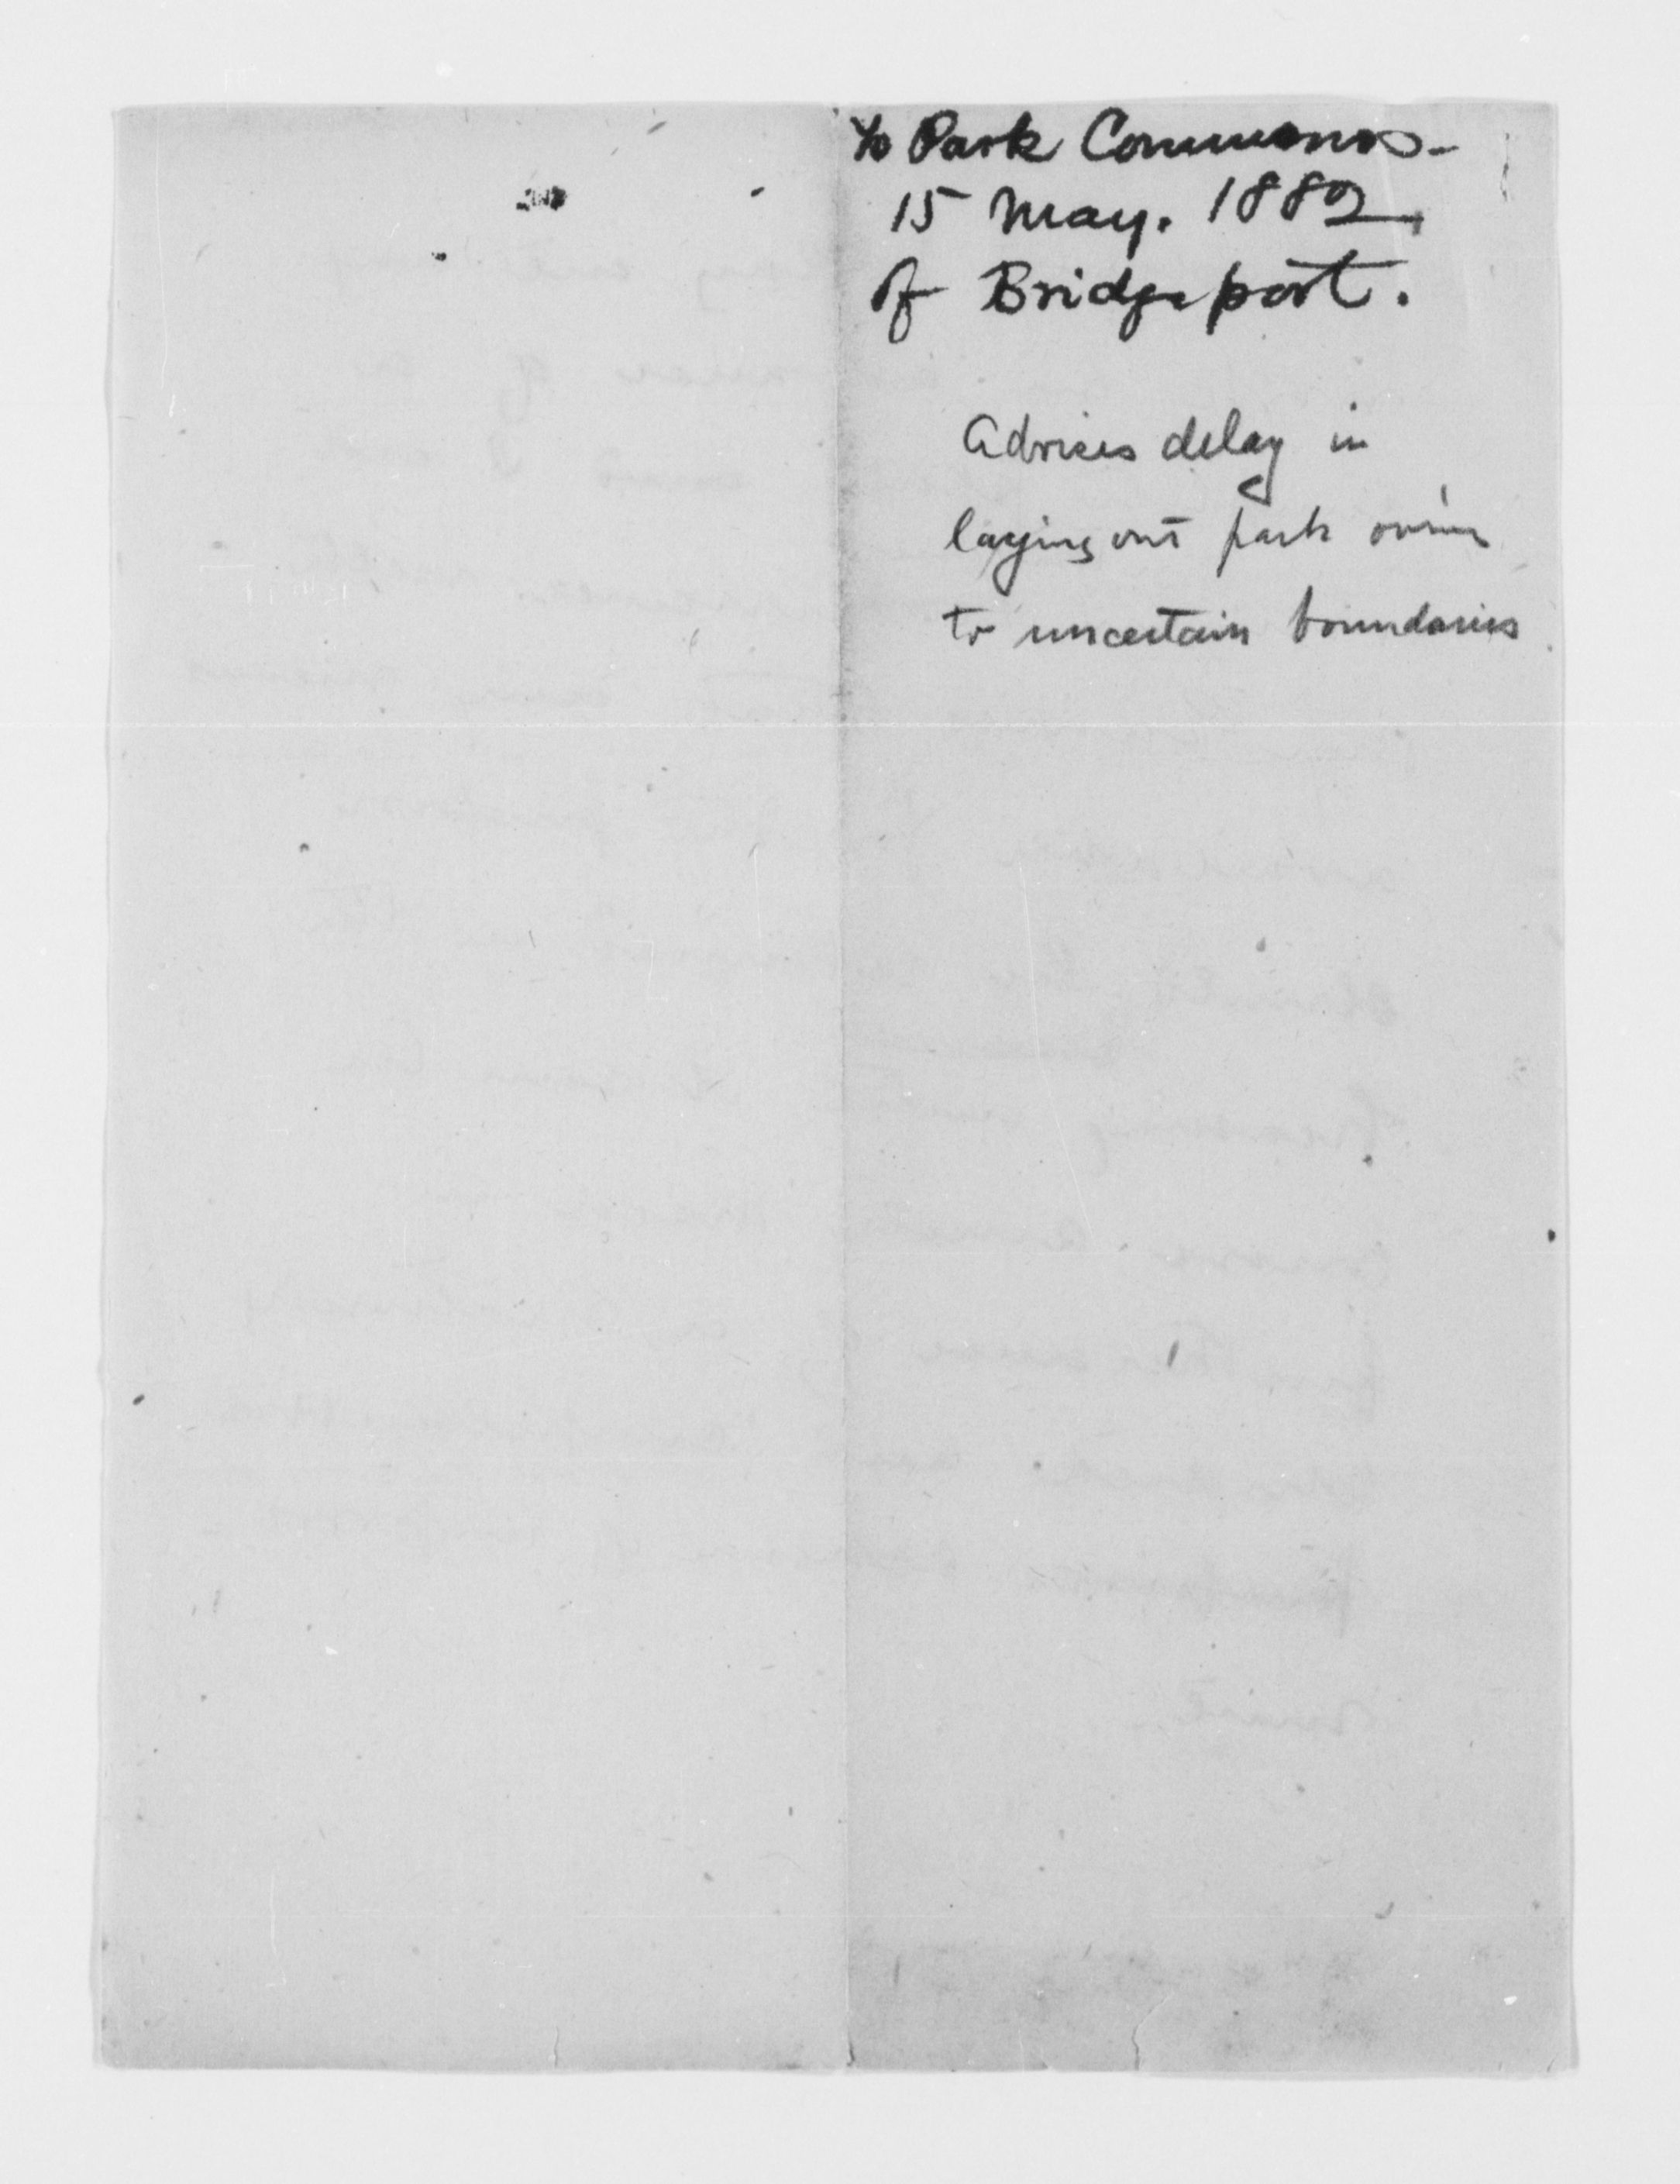 to Park Commrs.
15 May. 1882
of Bridgeport.
Advises delay in
laying out park owing
to uncertain boundaries